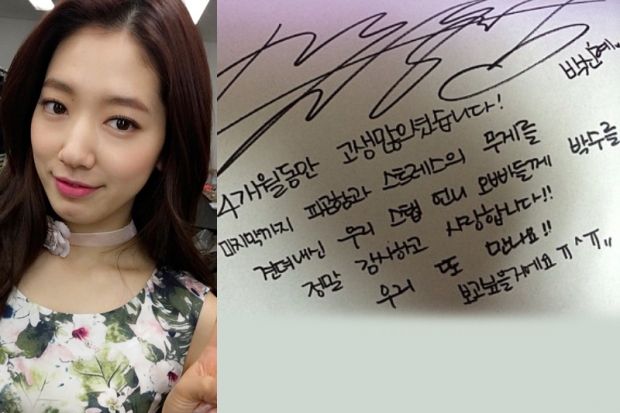 박신혜.
4개월동안 고생많이하셨습니다!
마지막까지 피곤함과 스트레스의 무게를
견뎌내신 우리 스탭 언니 오빠들께 박수를
정말 감사하고 사랑합니다!!
우리 또 만나요!!
보고싶을거에요 ㅠ^ㅠ,,